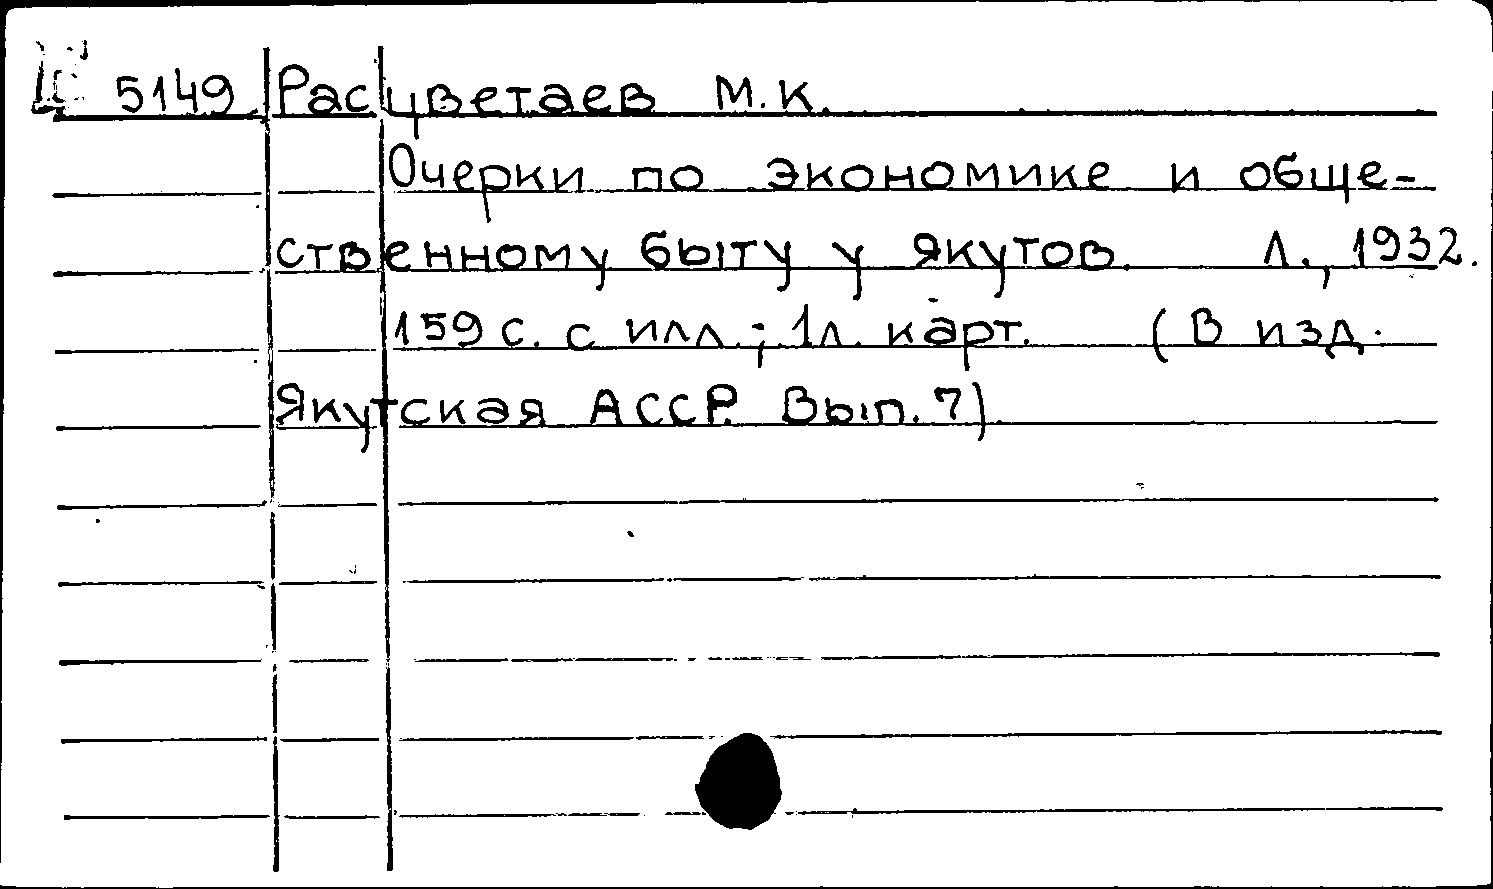 5149 Расцветаев М.К.
Очерки по экономике и обще-
ственному быту у якутов. Л., 1932.
159 с. с илл.; 1л. карт. (В изд.
Якутская АССР. Вып. 7)